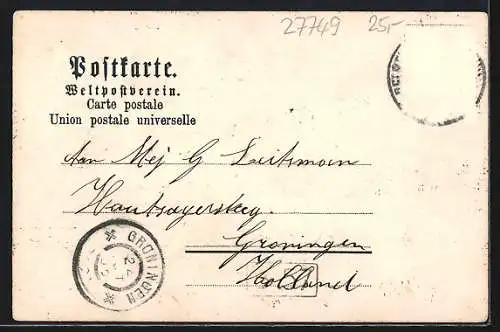 27749 25,-
Postkarte.
Weltpostverein.
Carte postale
Union postale universelle
Aan Mej G
Houtzagersteeg.
Groningen
Holland
GRONINGEN